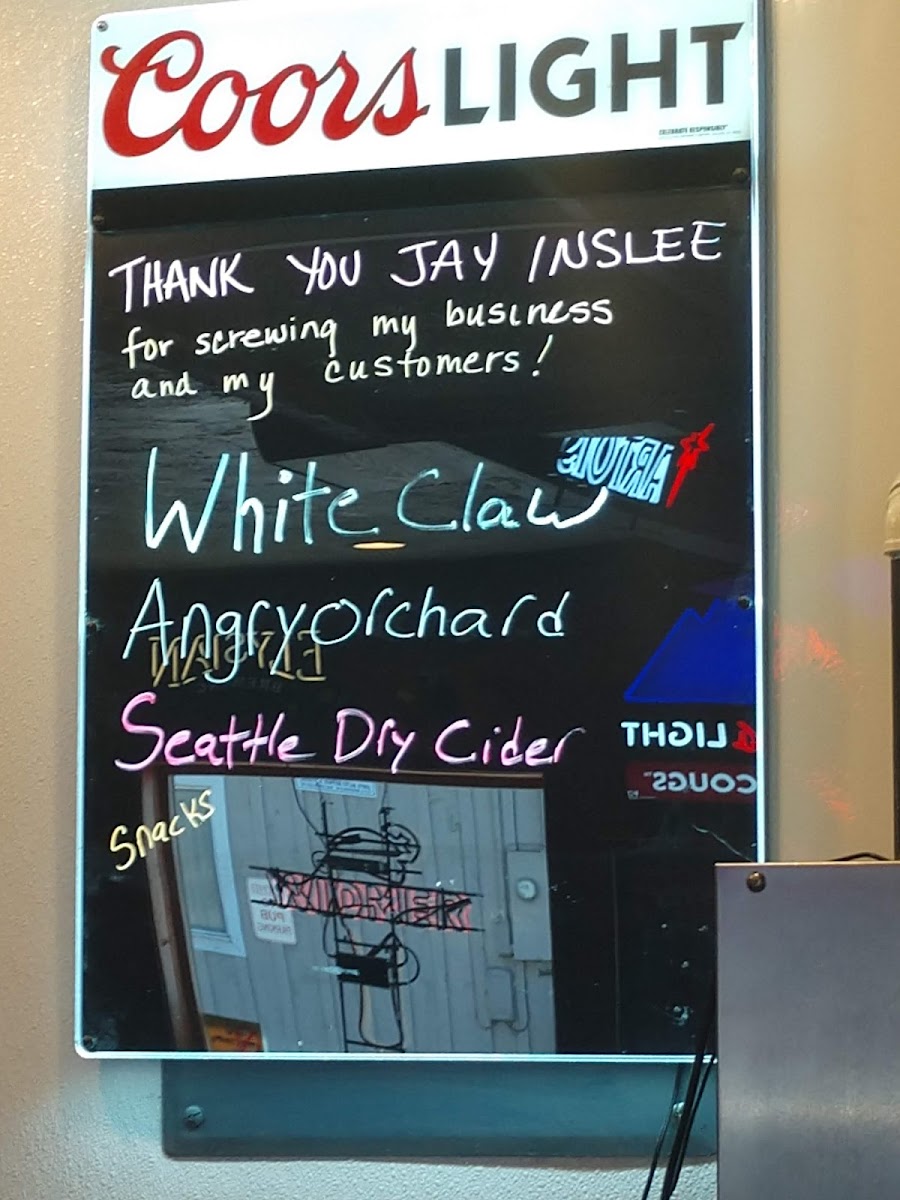 Coors LIGHT
CELEBRATE RESPONSIBLY
THANK YOU JAY INSLEE
for screwing my business
and my customers!
White Claw
Angry orchard
ELYSIAN
Seattle Dry Cider
LIGHT
COUGS
Snacks
PUB
PARKING